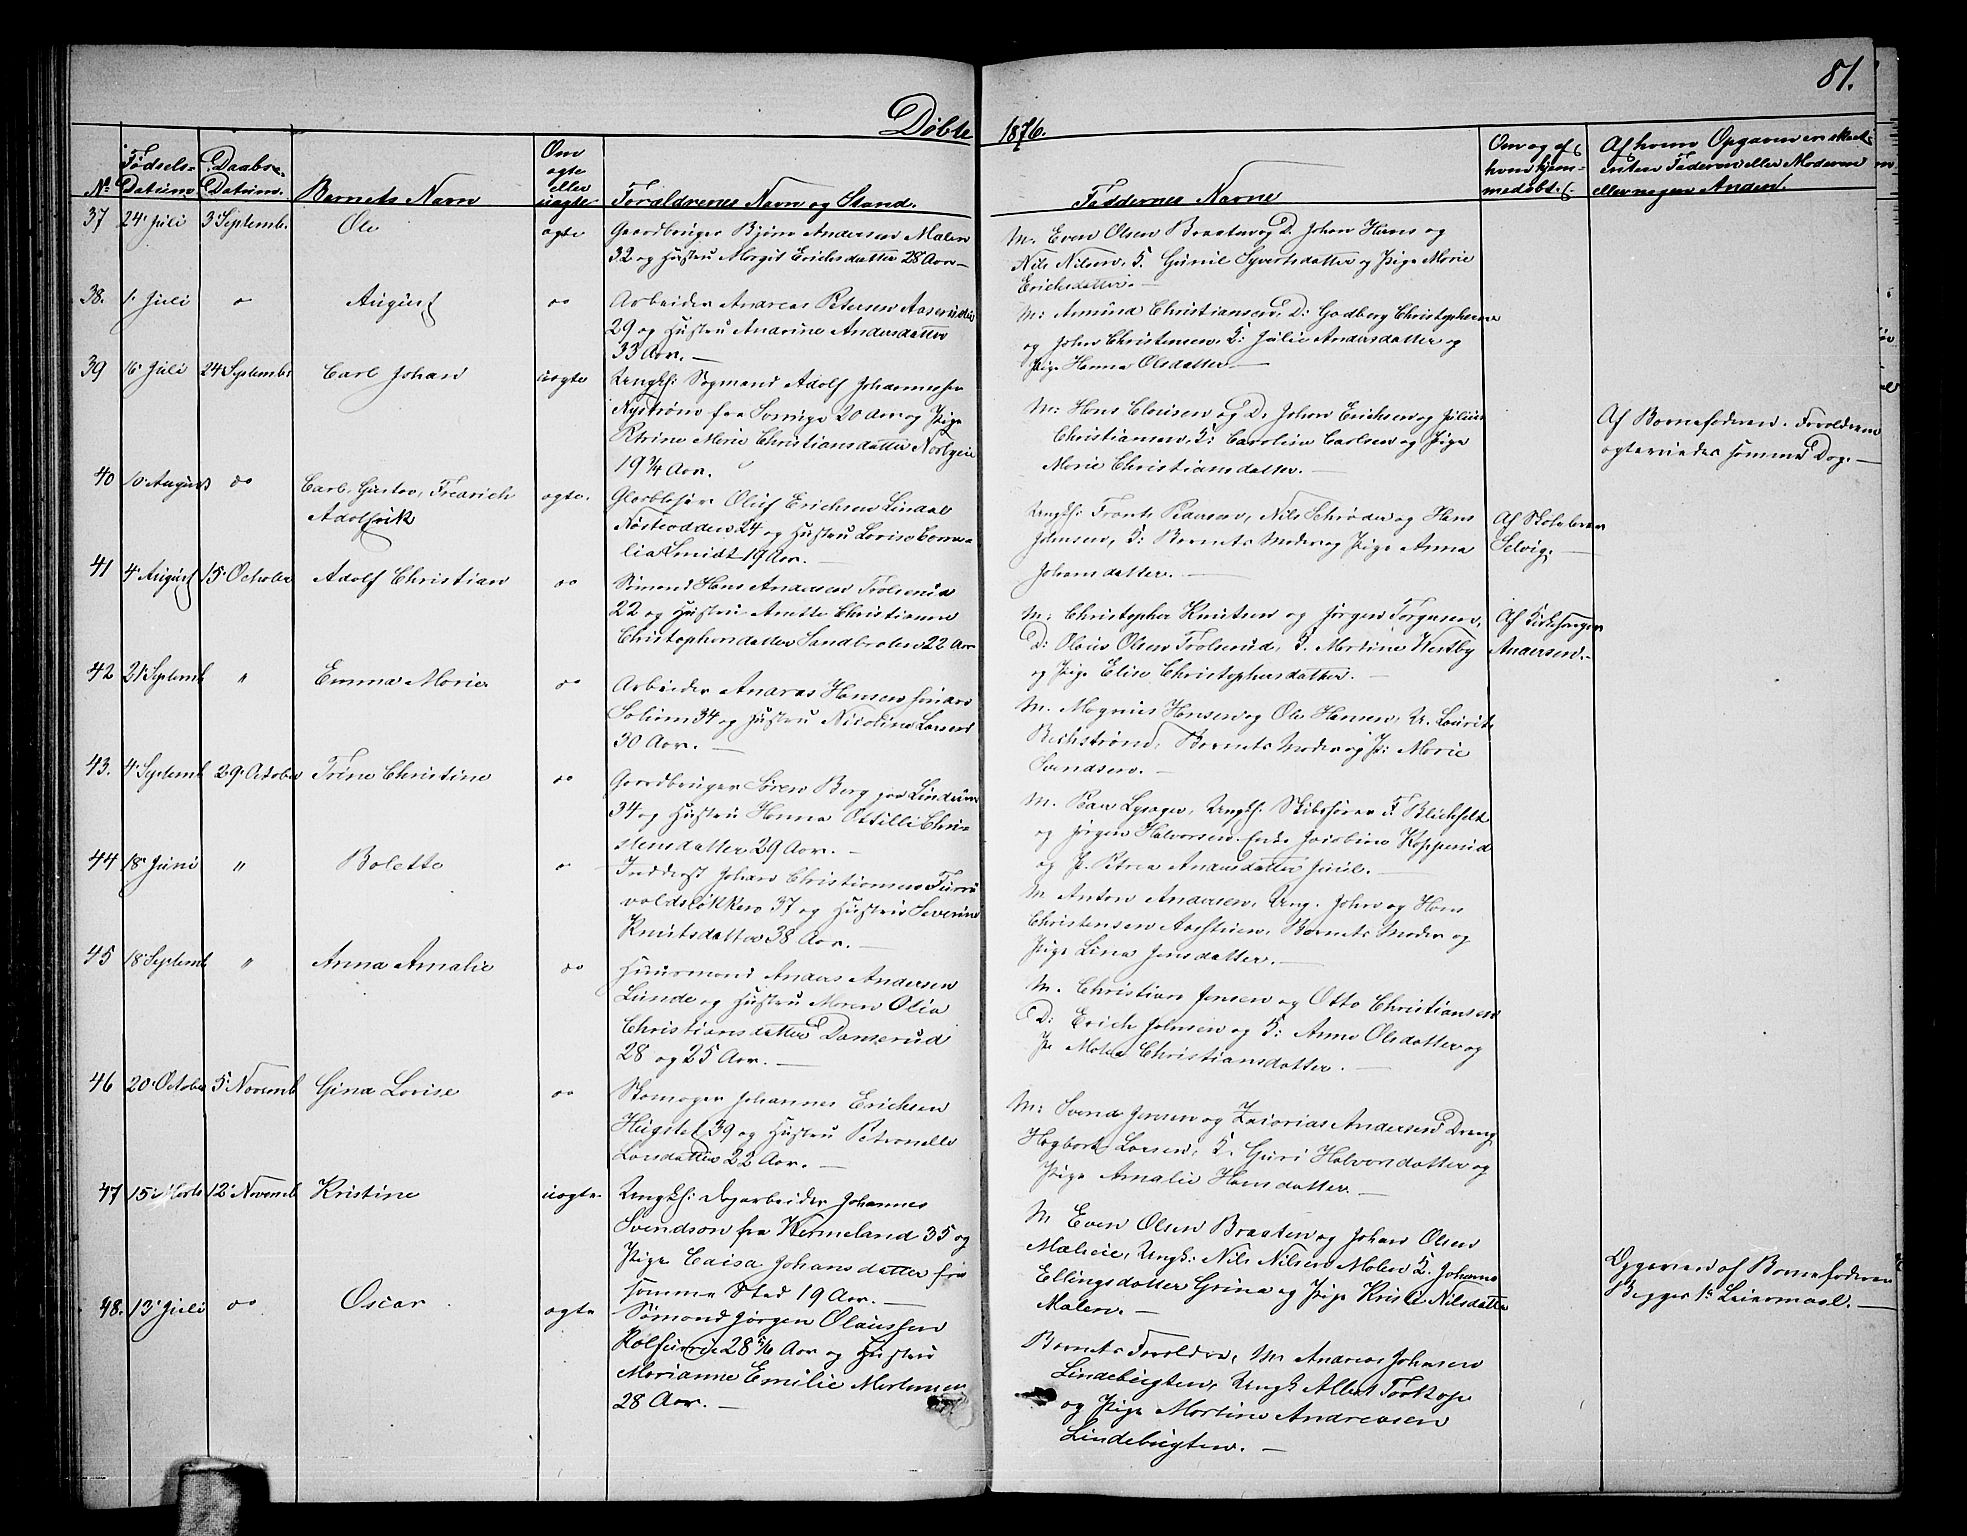 81.
Døbte 1876.
No
Fødsels-
Datum
Daabs-
Datum.
Barnets Navn
Om
ægte
eller
uægte
Forældrenes Navn og Stand.
Faddernes Navne
Om og af
hvem hjem-
medøbt.
Af hvem Opgaven er skeet
enten Faderen eller Moderen
eller nogen Anden.
37 24 Juli 3 Septembr. Ole ægte
Gaardbruger Bjørn Andersen Malen
32 og Hustru Margit Erichsdatter 28 Aar.—
M. Even Olsen Braaten og D. Johan Hans og
Nils Nilsen, K. Gunil Syvertsdatter og Pige Marie
Erichsdatter.—
38. 1 Juli " August do
Arbeider Andreas Petersen Aaserudei
29 og Hustru Andrine Andersdatter
33 Aar.—
M: Amund Christiansen, D: Gudberg Christophersen
og Johan Christensen, K: Julie Andersdatter og
Pige Hanna Olsdatter.—
39 16 Juli 24 Septembr Carl Johan uægte
Ungk: Sogmand Adolf Johannessen
Nystrøm fra Sverige 20 Aar og Pige
Petrine Marie Christiansdatter
19 3/4 Aar.
M: Hans Clausen og D. Johan Erichsen og Julius
Christiansen, K: Caroline Carlsen og Pige
Marie Christiansdatter.—
Af Barnefaderen. Forældrene
ægteviedes samme Dag.—
40 10 August do Carl, Gustav, Fredrich
Adolfsvik ægte.
Glasblæser Oluf Erichsen Lindal
Næsteodden 24 og Hustru Lovise Corne-
lia Smidt 19 Aar.—
Ungk: Frants Pedersen, Nils Schrøder og Hans
Johnsen, K: Barnets Moder og Pige Anna
Johansdatter.—
Af Skolelærer
Selvig.—
41 4 August 15 October Adolf Christian do
Sømand Hans Andersen Trolserud
22 og Hustru Anette Christianne
Christophersdatter Sandbraaten 22 Aar
M: Christopher Knutsen og Jørgen Torgersen,
D: Olaus Olsen Trolserud, K. Martine Westby
og Pige Elise Christophersdatter.—
Af Kirkesanger
Andersen.—
42 21 Septemb " Emma Marie do
Arbeider Andreas Hansen
Solum 34 og Hustru Nicoline Larsen
30 Aar.—
M. Magnus Hansen og Ole Hansen, U. Laurits
Bechstrøm, Barnets Moder og P: Marie
Svendsen.—
43. 4 Septemb 29 October Trine Christine do
Gaardbruger Søren Berg paa Lindum
34 og Hustru Hanna Ottilli Chri-
stensdatter 29 Aar.—
M. Peder Lysager, Ungk: Skibsfører F. Blichfeldt
og Jørgen Halvorsen, Enke Jacobine Kopperud
og P. Petrea Andersdatter Juul.—
44 18 Juni " Bolette do
Inderst Johan Christiansen Furu-
voldsløkken 37 og Hustru Severine
Knutsdatter 38 Aar.—
M Anton Andersen, Ung. John og Hans
Christensen Aasstuen, Barnets Moder og
Pige Lina Jensdatter.—
45 18 Septemb " Anna Amalie do
Huusmand Anders Andersen
Lunde og Hustru Maren Olia
Christiansdatter Danserud
28 og 25 Aar.—
M. Christian Jensen og Otto Christiansen
D: Erich Johnsen og K: Anne Olsdatter og
P: Mathea Christiansdatter.—
46 20 October 5 Novemb Gina Lovise do
Skomager Johannes Erichsen
Hugstet 39 og Hustru Petronelle
Larsdatter 22 Aar.—
M: Svend Jensen og Zacorias Andersen Dreng
Hagbart Larsen, K. Guri Halvorsdatter og
Pige Amalie Hansdatter.—
47 15 Marts 12 Novemb Kristine uægte.
Ungk: Dagarbeider Johannes
Svendson fra Wermeland 35 og
Pige Caisa Johansdatter fra
samme Sted 19 Aar.—
M Even Olsen Braaten og Johan Olsen
Maleie, Ungk: Nils Nilsen Malen K. Johanne
Ellingsdatter Grina og Pige Kristi Nilsdatter
Malen.—
Opgaven af Barnefaderen
Begges 1ste Leiermaal.—
48. 13 Juli do Oscar. ægte
Sømand Jørgen Olaussen
Rolfurie 28 5/6 Aar og Hustru
Marianne Emilie Mortensen
28 Aar.—
Barnets Forældre, M Andreas Johnsen
Lindebugten, Ungk Albert Torkop
og Pige Martine Andreasen
Lindebugten.—